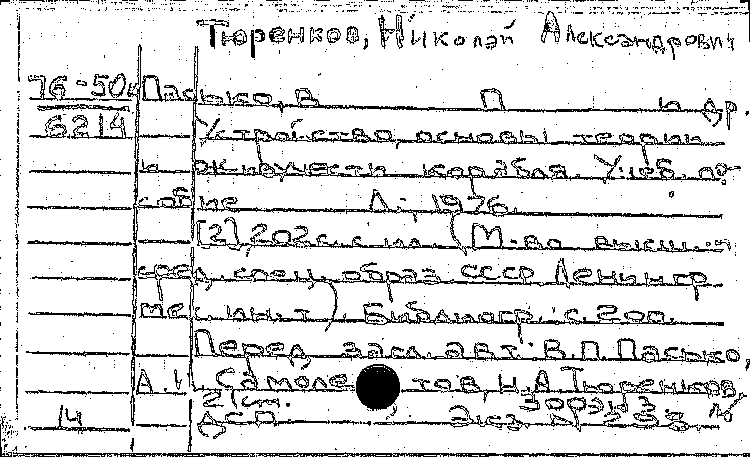 Тюренков, Николай Александрович
76-50 Пасько, В П и др.
6214 Устройство, основы теории
и живучести корабля. Учеб. по-
собие Л., 1976.
[2], 202 с. с ил. (М-во высш. и
сред. спец. образ СССР Ленингр
мех. ин-т). Библиогр.: с. 200.
Перед загл. авт.: В.П. Пасько,
А.И. Самолетов, Н.А. Тюренков,
21 ст.
14 ДСП. Экз. №